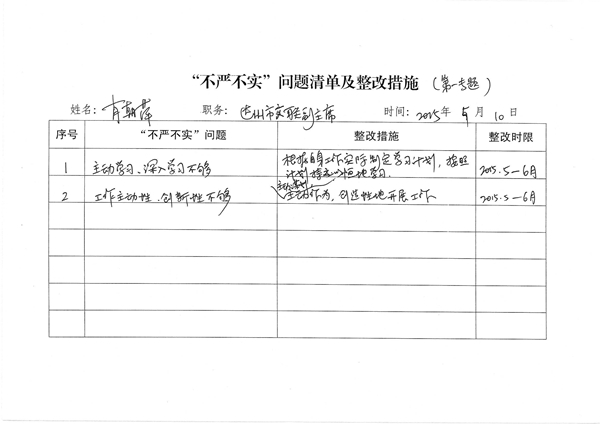 “不严不实”问题清单及整改措施（第一专题）
姓名：肖朝萍 职务：达州市文联副主席 时间：2015年 5月 10日
序号 “不严不实”问题 整改措施 整改时限
1 主动学习、深入学习不够 根据自身工作实际制定学习计划，按照 2015.5—6月
计划持之以恒地学习．
2 工作主动性、创新性不够 主动作为，创造性地开展工作 2015.5—6月